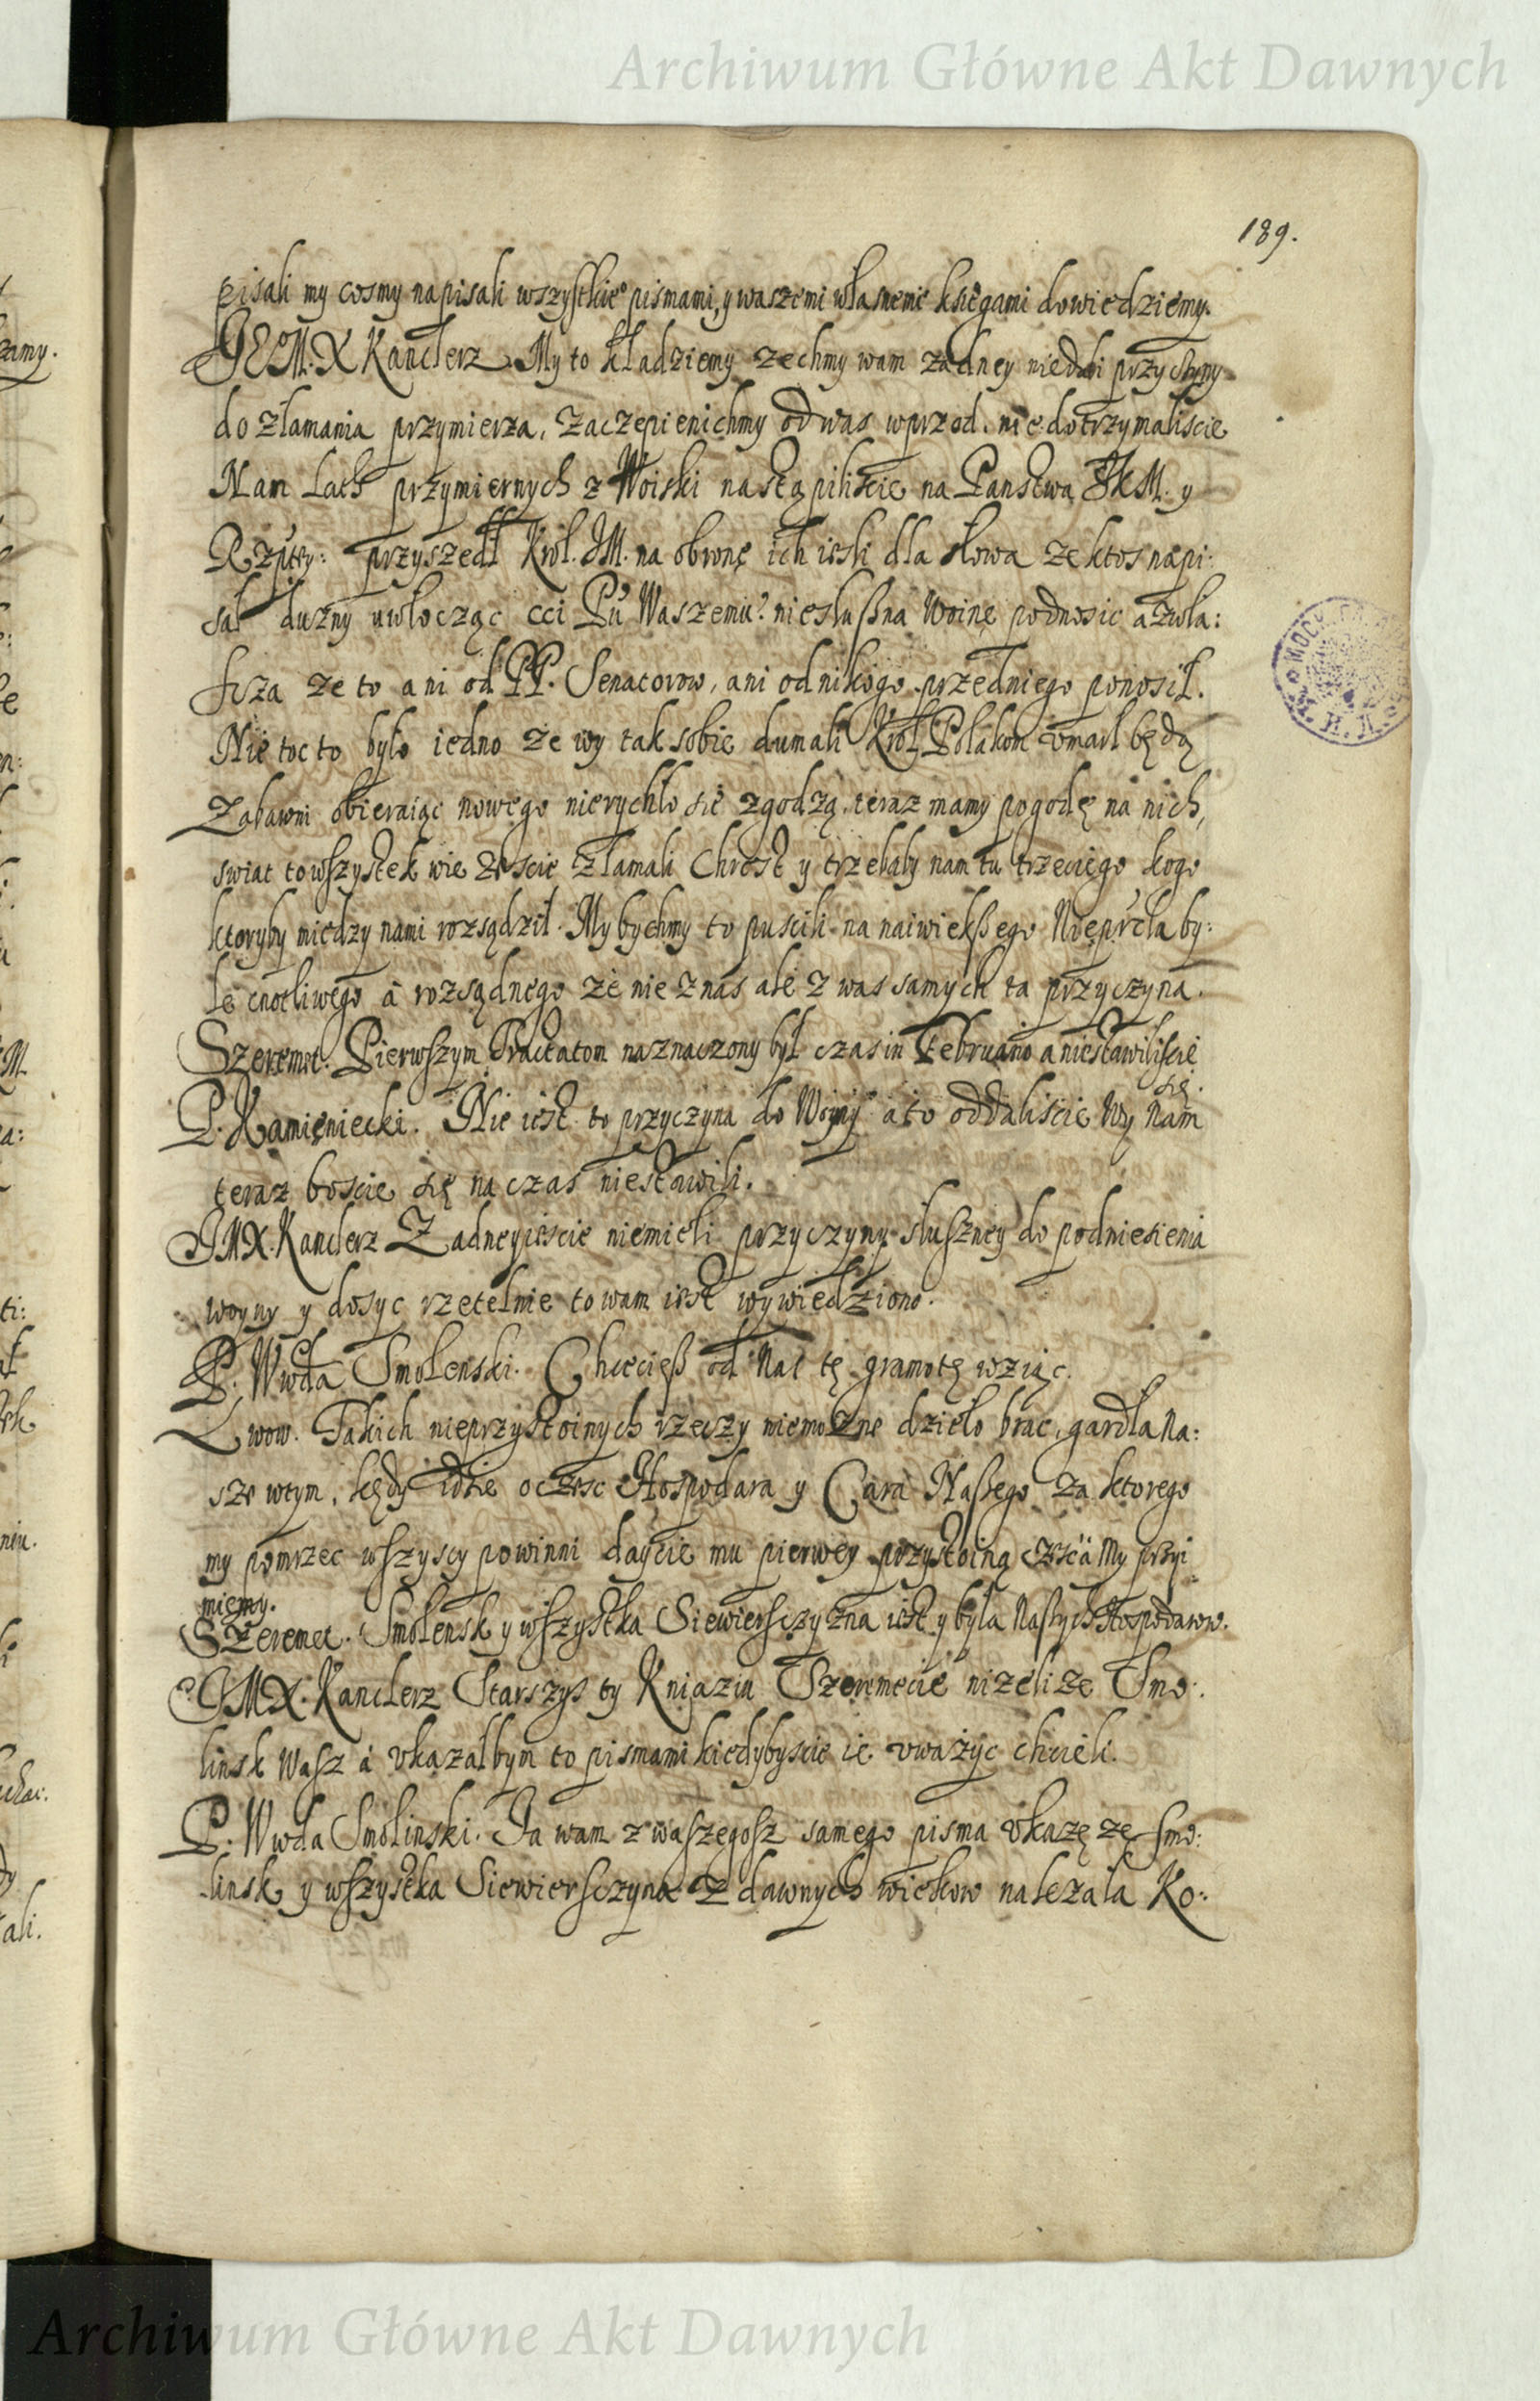 Archiwum Główne Akt Dawnych
189.
pisali my cosmy napisali wszystkie pismami, y waszemi własnemi księgami dowiedziemy.
JEM. X Kanclerz. My to kładziemy zechmy wam zadney niedali przyczyny
do złamania przymierza, zaczepienichmy od was wprzod. niedotrzymaliscie
Nam Lath przymiernych z Woiski nastąpiliscie na Panstwa JKM. y
Rzptey: przyszedł Krol. JM. na obronę ich iesli dla słowa ze ktos napi:
sał duzny uwłocząc cci Pu Waszemu? niesłuszna Woinę podnosic a zwła:
scza ze to ani od PP. Senatorow, ani od nikogo przedniego ponosił.
Nie toc to było iedno ze wy tak sobie dumali Krol Polakom umarł będą
Zabawni obieraiąc nowego nierychło się zgodzą, teraz mamy pogodę na nich,
swiat to wszystek wie zescie złamali Chrest y trzebaby nam tu trzeciego kogo
ktoryby między nami rozsądził. My bychmy to puscili na naiwiekszego Nieprcla by:
le cnotliwego a rozsądnego ze nie z nas ale z was samych ta przyczyna.
Szeremet. Pierwszym Tractatom naznaczony był czas in Februario a niestawiliscie
się.
P. Kamięniecki. Nie iest to przyczyna do Woyny a to oddaliscie Wy Nam
teraz boscie się na czas niestawili.
JMX. Kanclerz Zadneyiescie niemieli przyczyny słuszney do podniesienia
woyny y dosyc rzetelnie to wam iest wywiedziono.
P. Wwda Smolenski. Chcecieß od Nas tę gramotę wziąc.
Lwow. Takich nieprzystoinych rzeczy niemozne dzieło brac, gardła Na:
sze wtym, kędy idzie o czesc Hospodara y Cara Naßego za ktorego
my pomrzec wszyscy powinni daycie mu pierwey przystoiną czesc a My przyi
miemy.
Szeremet. Smolensk y wszystka Siewiersczyzna iest y była Naszych Hospodarow.
JMX. Kanclerz Starszys ty Kniaziu Szeremecie nizeli ze Smo:
linsk Wasz a ukazałbym to pismami kiedybyscie ie uważyc chcieli.
P. Wwda Smolinski. Ja wam z waszegosz samego pisma ukazę zę Smo:
linsk y wszystka Siewiersczyna z dawnych wiekow nalezała Ko:
Archiwum Główne Akt Dawnych